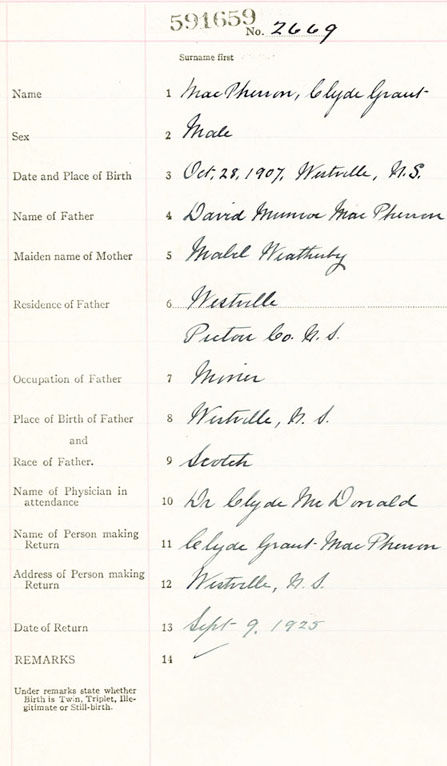 591659
No. 2669
Surname first
Name 1 MacPherson, Clyde Grant
Sex 2 Male
Date and Place of Birth 3 Oct. 28, 1907, Westville, N.S.
Name of Father 4 David Munroe MacPherson
Maiden name of Mother 5 Mabel Weatherby
Residence of Father 6 Westville
Pictou Co. N.S.
Occupation of Father 7 Miner
Place of Birth of Father 8 Westville, N.S.
and
Race of Father. 9 Scotch
Name of Physician in
attendance 10 Dr Clyde McDonald
Name of Person making
Return 11 Clyde Grant MacPherson
Address of Person making
Return 12 Westville, N.S.
Date of Return 13 Sept 9, 1925
REMARKS 14
Under remarks state whether
Birth is Twin, Triplet, Ille-
gitimate or Still-birth.